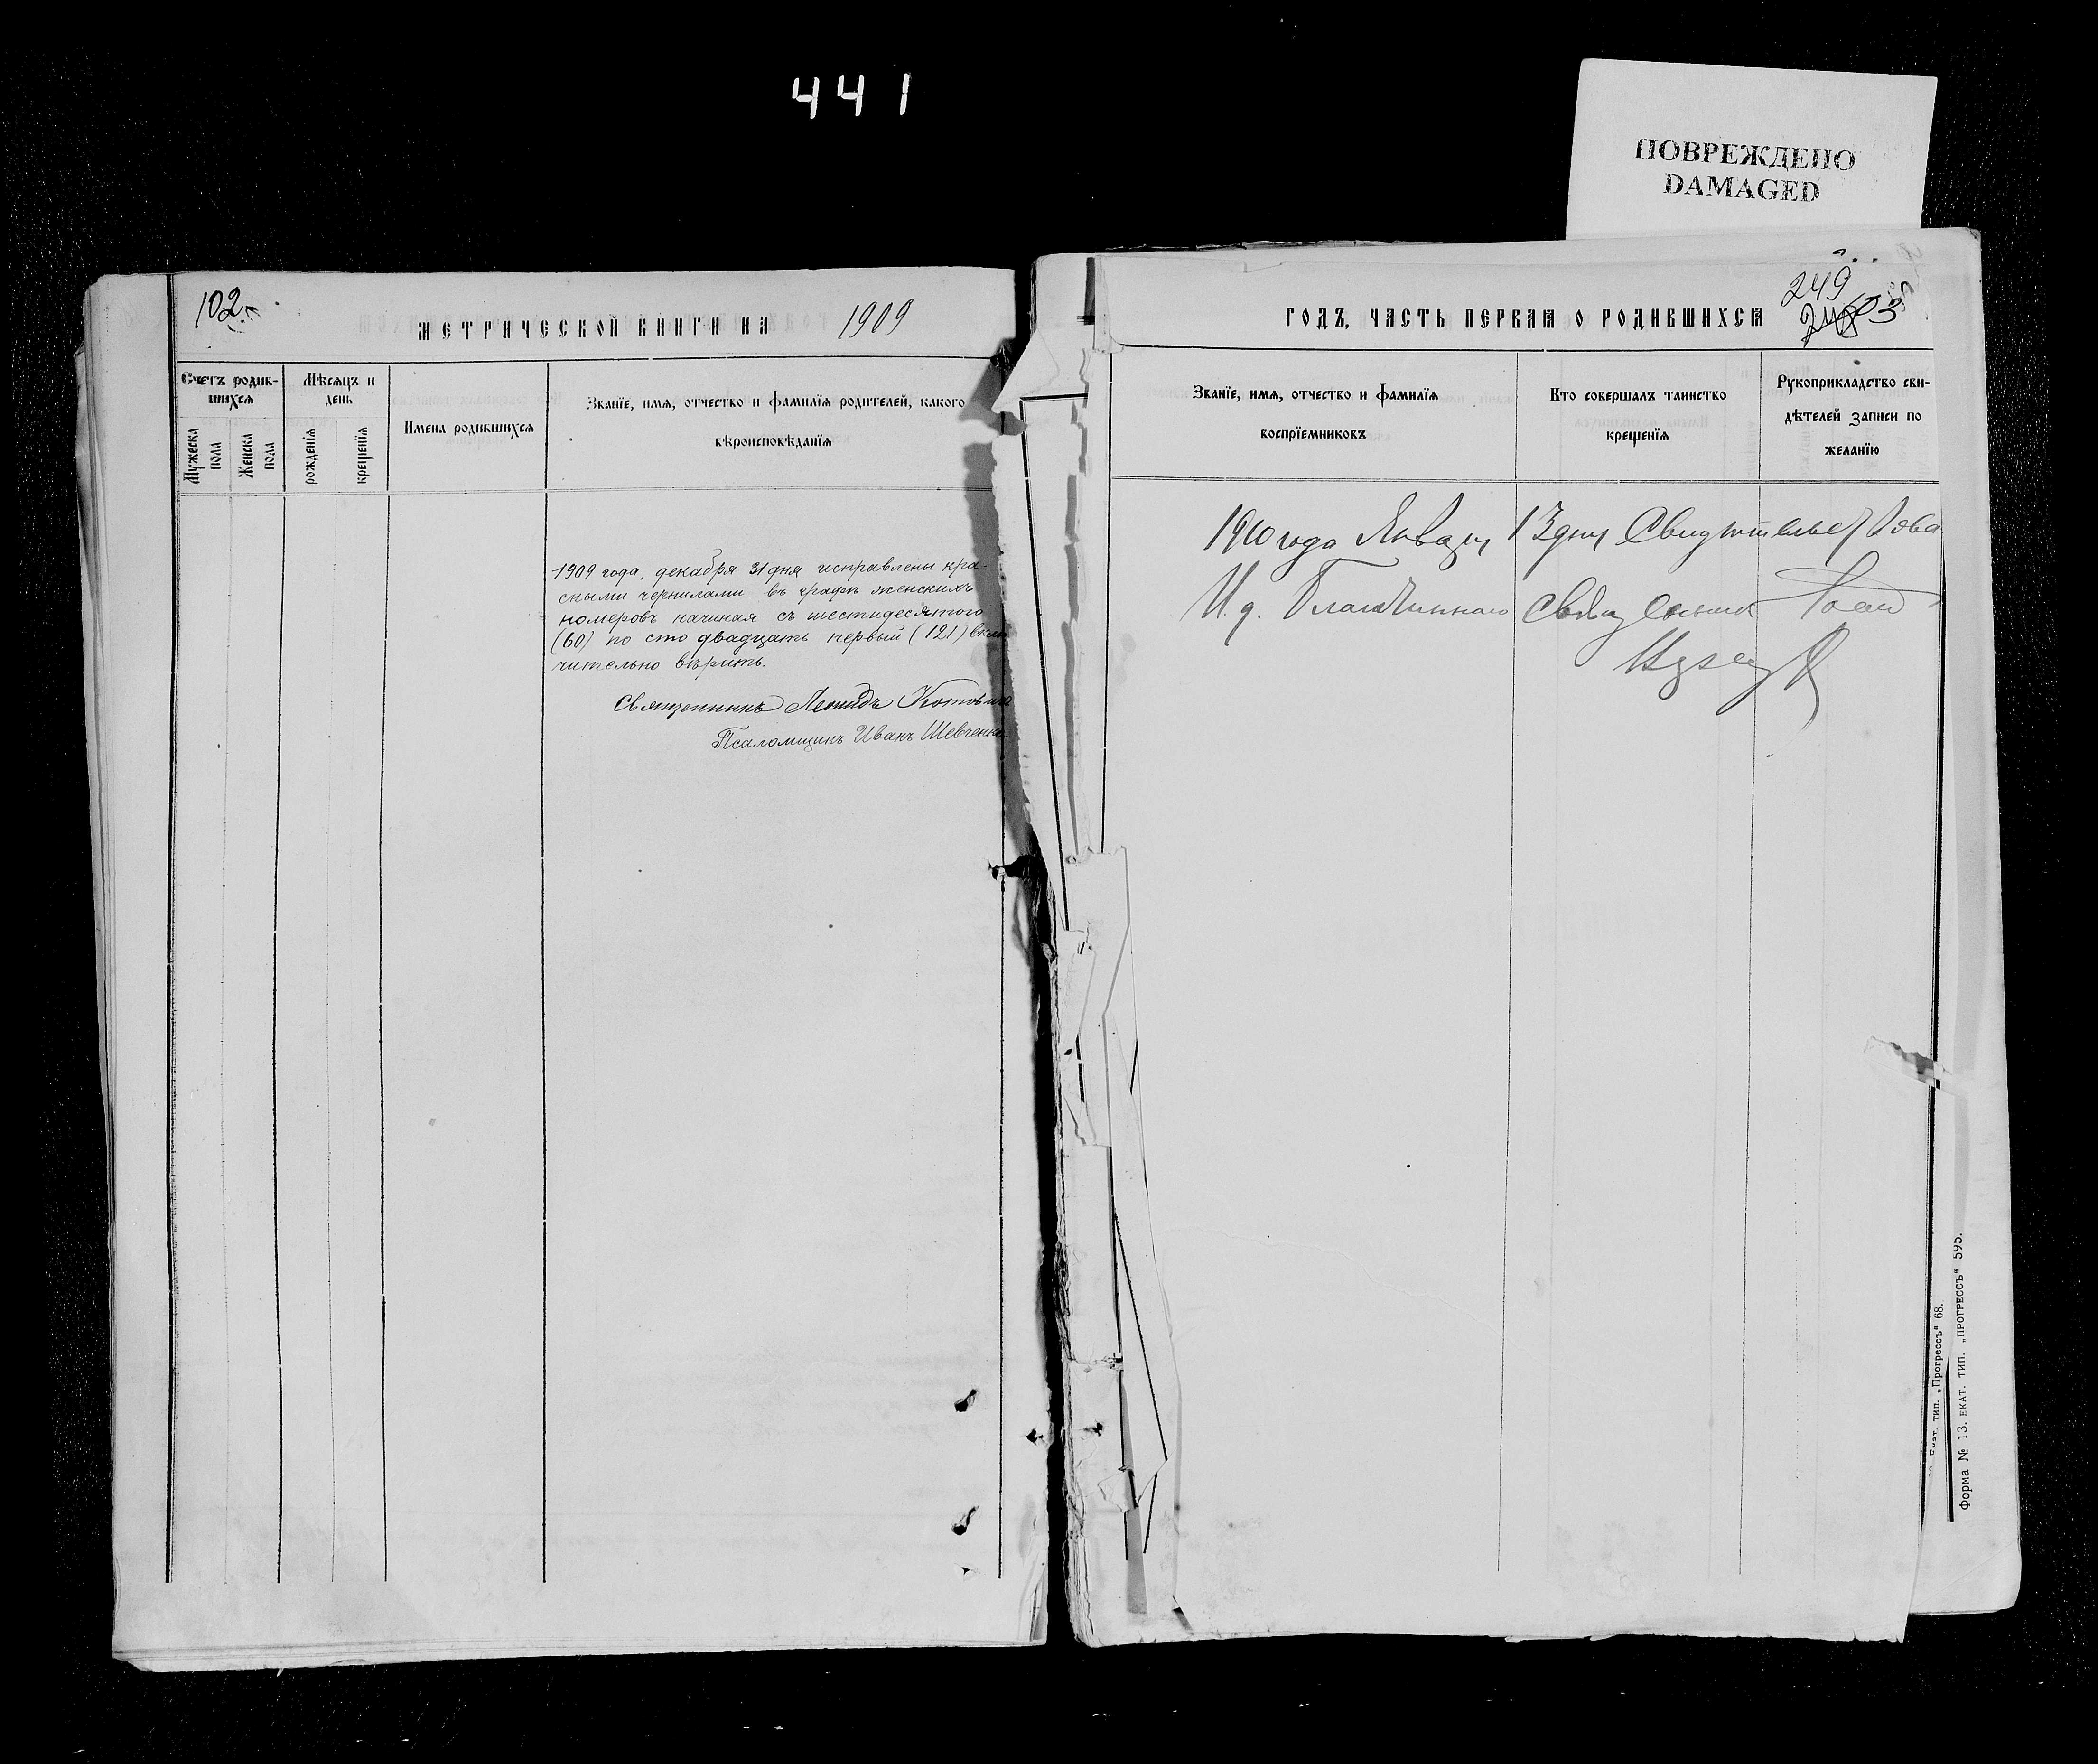 441
ПОВРЕЖДЕНО
DAMAGED
102
МЕТРИЧЕСКОЙ КНИГИ НА 1909
Счетъ родив-
шихся
Мѣсяцъ и
день
Мужеска
пола
Женска
пола
рожденія
крещенія
Имена родившихся
Званіе, имя, отчество и фамилія родителей, какого
вѣроисповѣданія
1909 года, декабря 31 дня исправлены кра-
сными чернилами въ графѣ женскихъ
номеровъ начиная съ шестидесятого
(60) по сто двадцать первый (121) вклю
чительно вѣрить.
Священникъ Леонидъ
Псаломщикъ Иванъ Шевченко.
249
103
ГОДЪ, ЧАСТЬ ПЕРВАЯ О РОДИВШИХСЯ
Званіе, имя, отчество и фамилія
воспріемниковъ
Кто совершалъ таинство
крещенія
Рукоприкладство сви-
дѣтелей записи по
желанію
1910 года Января 13 дня Свидѣтельствова
И. д. Благочиннаго Священникъ
тип. „Прогрессъ" 68.
Форма № 13. ЕКАТ. ТИП. „ПРОГРЕССЪ" 595.